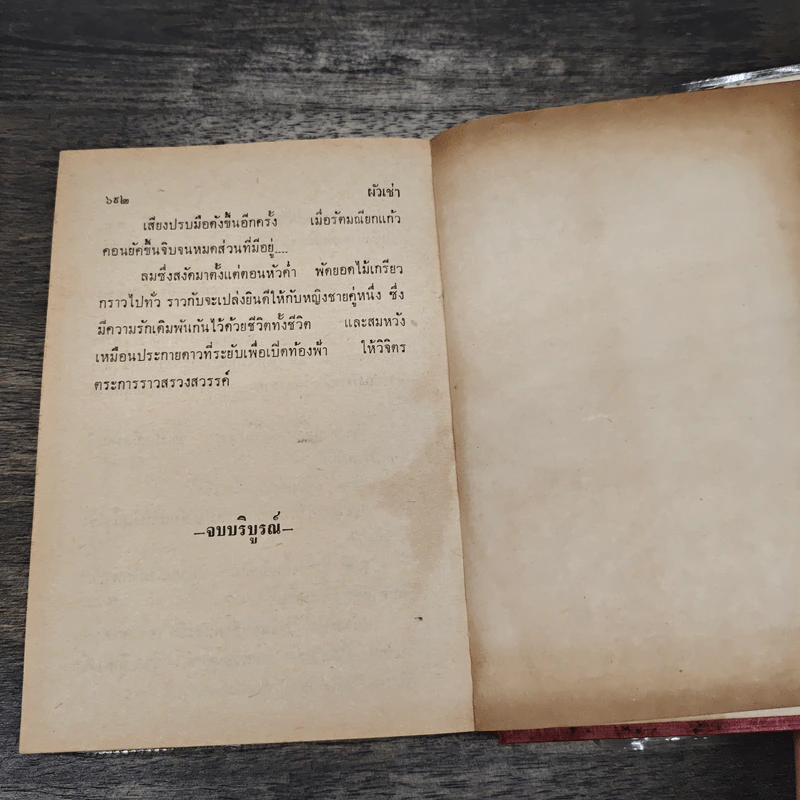 ๖๔๒ ผัวเช่า
เสียงปรบมือดังขึ้นอีกครั้ง เมื่อรัตมณียกแก้ว
คอนยัคขึ้นจิบจนหมดส่วนที่มีอยู่....
ลมซึ่งสงัดมาตั้งแต่ตอนหัวค่ำ พัดยอดไม้เกรียว
กราวไปทั่ว ราวกับจะเปล่งยินดีให้กับหญิงชายคู่หนึ่ง ซึ่ง
มีความรักเดิมพันกันไว้ด้วยชีวิตทั้งชีวิต และสมหวัง
เหมือนประกายดาวที่ระยับเพื่อเปิดท้องฟ้า ให้วิจิตร
ตระการราวสรวงสวรรค์
—จบบริบูรณ์—